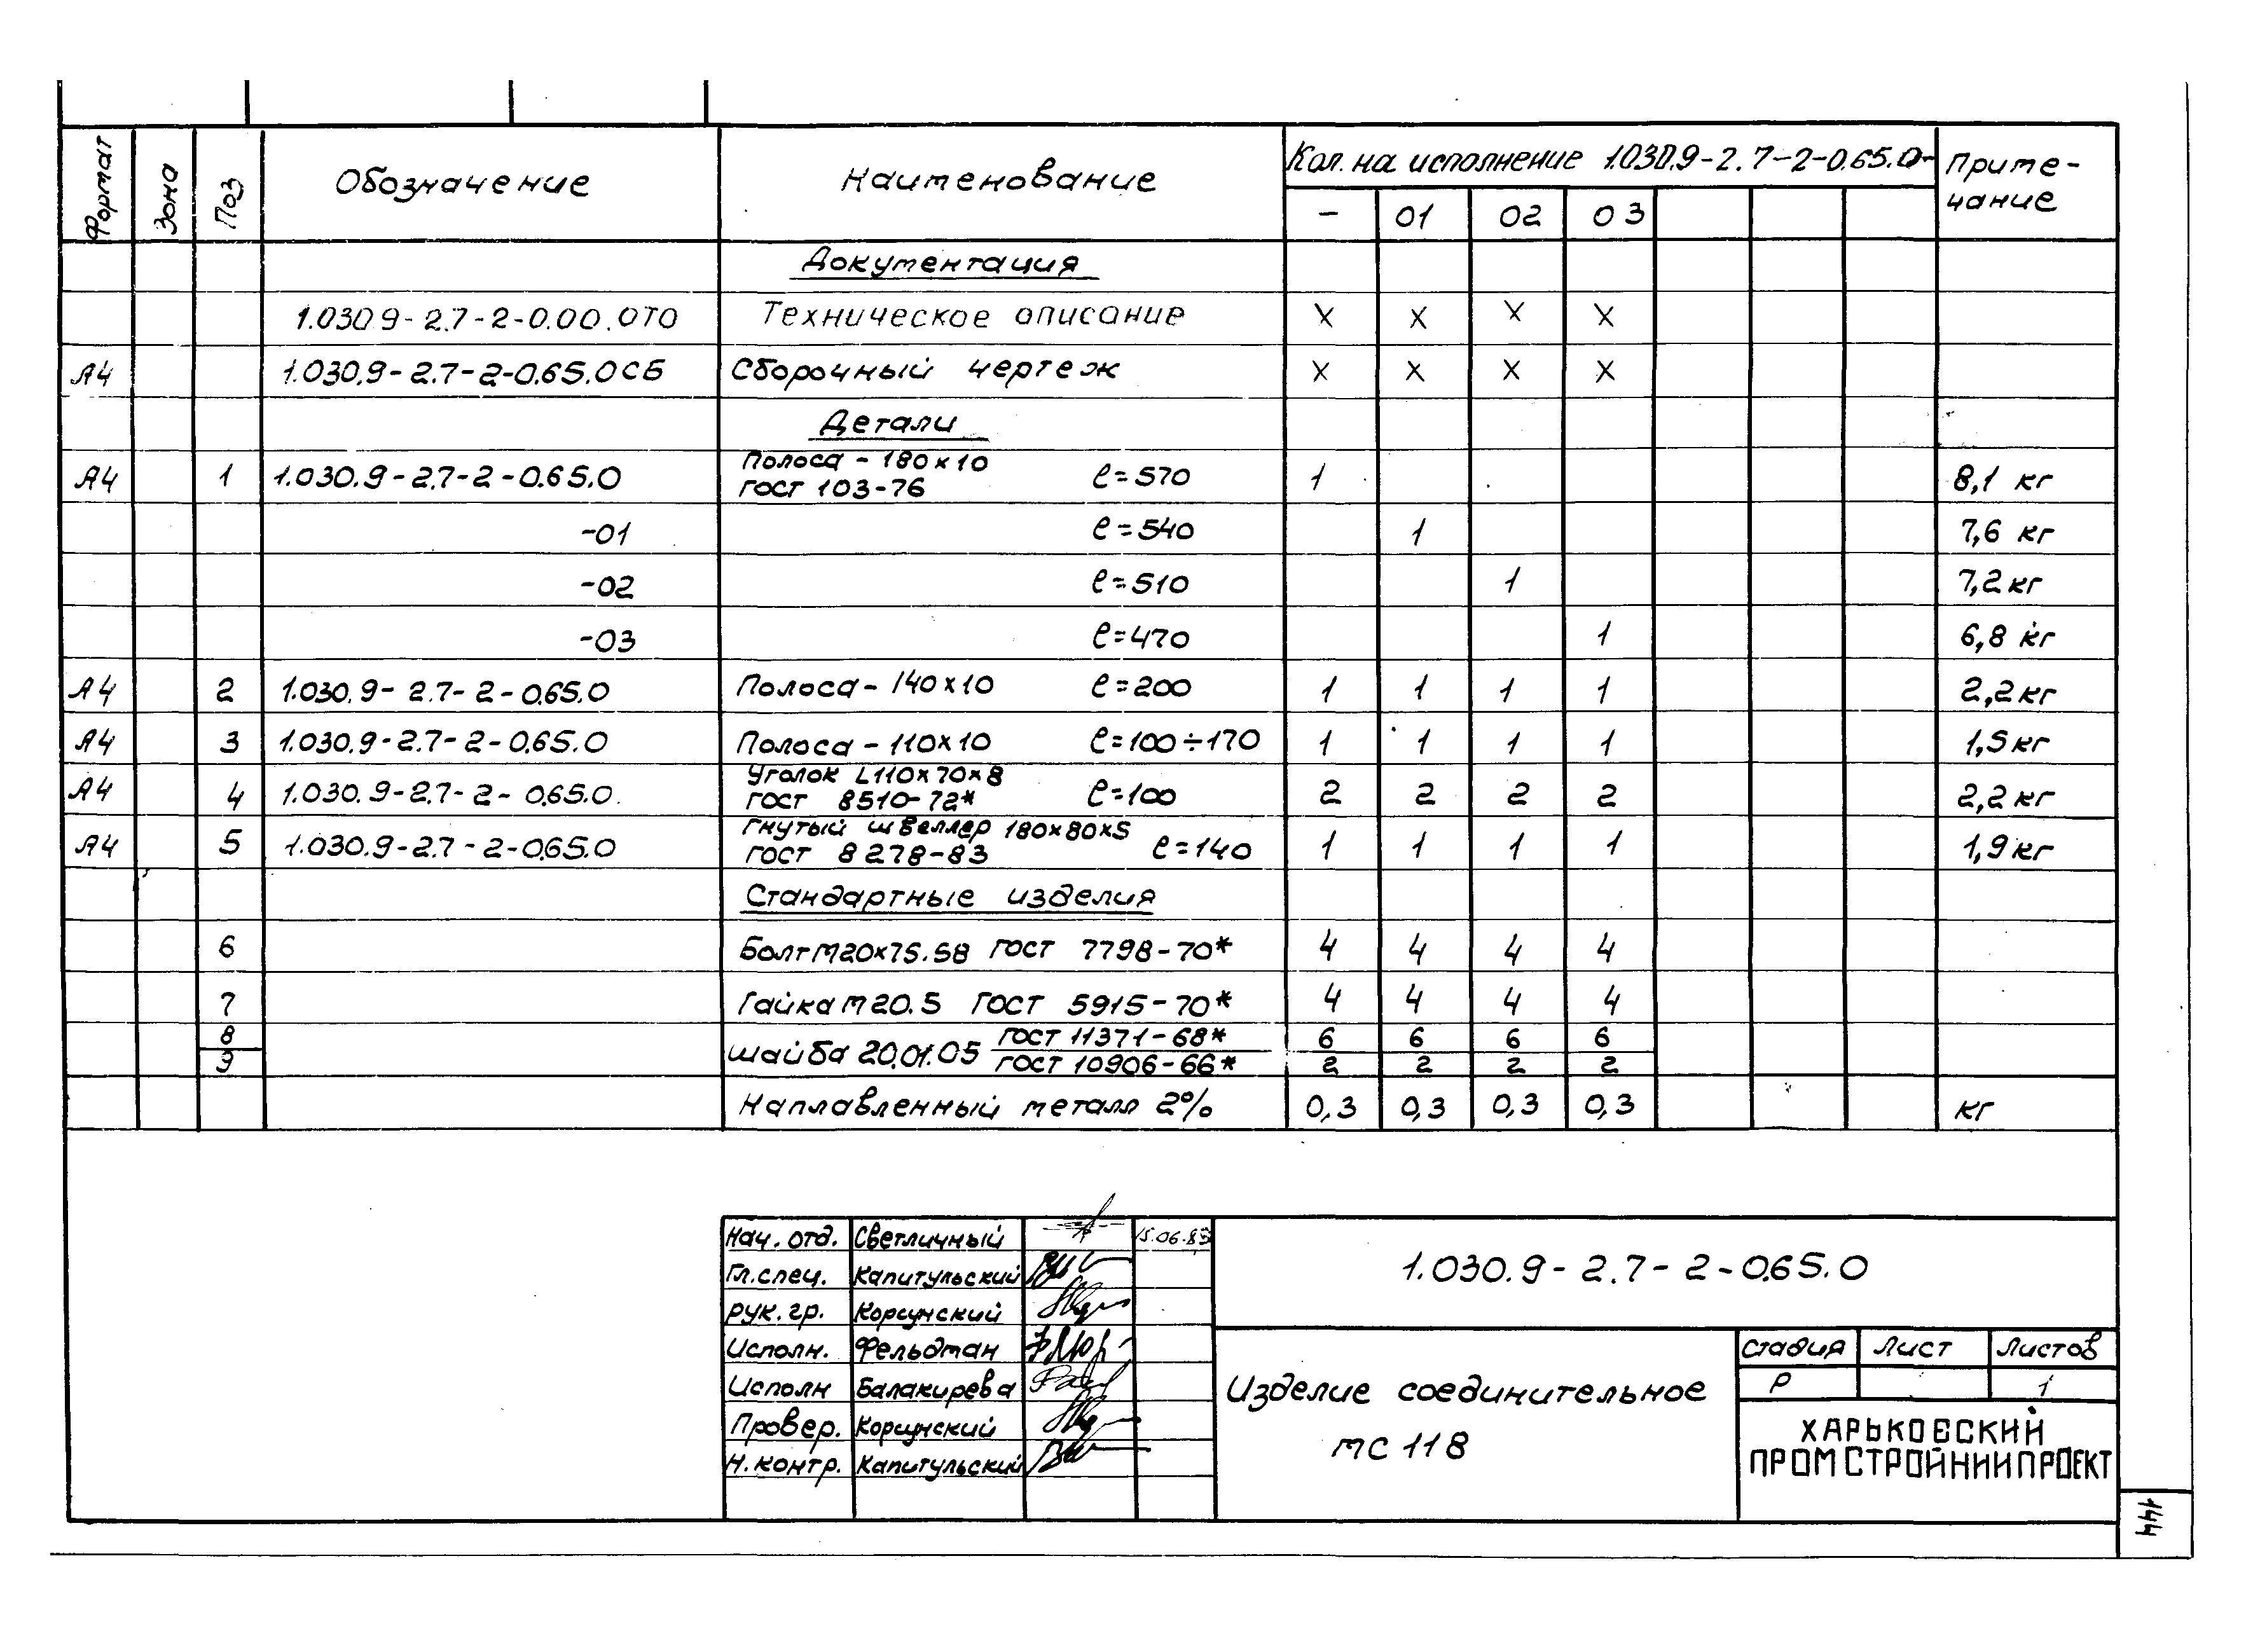 Формат Зона Поз Обозначение Наименование Кол. на исполнение 1.030.9-2.7-2-0.65.0- Приме-
чание
- 01 02 03
Документация
1.030 9-2.7-2-0.00.0ТО Техническое описание X X X X
А4 1.030.9-2.7-2-0.65.0СБ Сборочный чертеж X X X X
Детали
А4 1 1.030.9-2.7-2-0.65.0 Полоса-180x10 ℓ=570 1 8,1 кг
ГОСТ 103-76
-01 ℓ=540 1 7,6 кг
-02 ℓ=510 1 7,2 кг
-03 ℓ=470 1 6,8 кг
А4 2 1.030.9-2.7-2-0.65.0 Полоса-140x10 ℓ=200 1 1 1 1 2,2 кг
А4 3 1.030.9-2.7-2-0.65.0 Полоса-110x10 ℓ=100÷170 1 1 1 1 1,5 кг
А4 4 1.030.9-2.7-2-0.65.0. Уголок L110x70x8 ℓ=100 2 2 2 2 2,2 кг
ГОСТ 8510-72*
А4 5 1.030.9-2.7-2-0.65.0 Гнутый швеллер 180x80x5 ℓ=140 1 1 1 1 1,9 кг
ГОСТ 8278-83
Стандартные изделия
6 Болт М20x75.58 ГОСТ 7798-70* 4 4 4 4
7 Гайка М20.5 ГОСТ 5915-70* 4 4 4 4
8 Шайба 20.01.05 ГОСТ 11371-68* 6 6 6 6
9 ГОСТ 10906-66* 2 2 2 2
Наплавленный металл 2% 0,3 0,3 0,3 0,3 кг
Нач. отд. Светличный
Гл. спец. Капитульский
Рук. гр. Корсунский
Исполн. Фельдман
Исполн Балакирева
Провер. Корсунский
Н. контр. Капитульский
1.030.9-2.7-2-0.65.0
Изделие соединительное
МС 118
Стадия Лист Листов
Р 1
ХАРЬКОВСКИЙ
ПРОМСТРОЙНИИПРОЕКТ
144